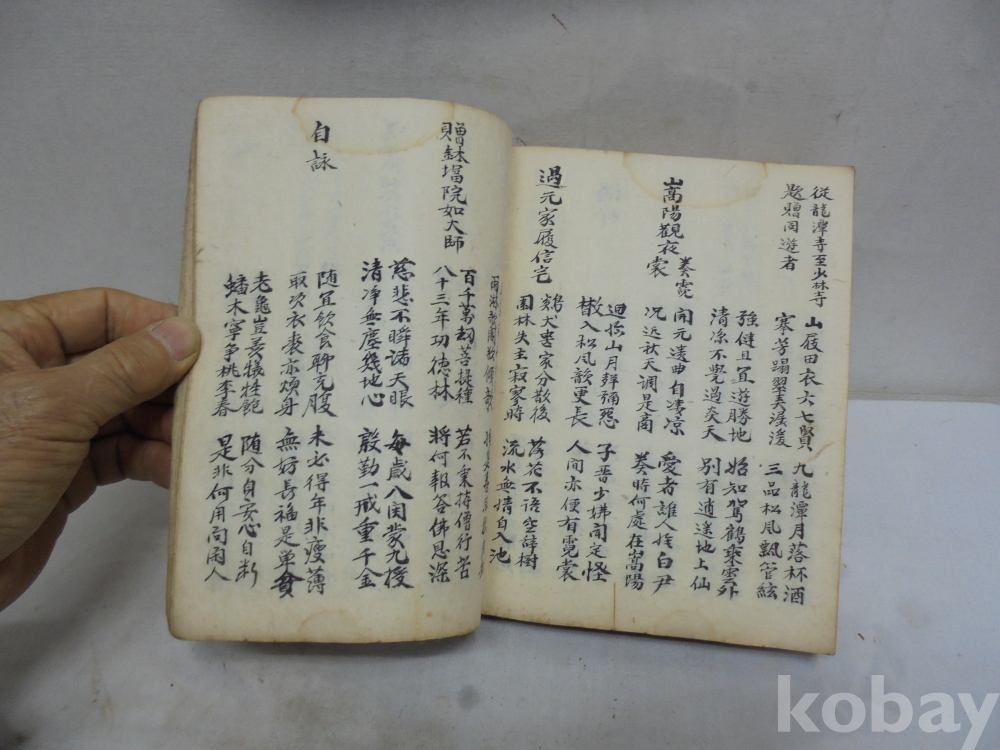 從龍潭寺至少林寺
題贈同遊者
山屐田衣六七賢 九龍潭月落杯酒
搴芳蹋翠弄潺湲 三品松風飄管絃
強健且宜遊勝地 始知駕鶴乘雲外
清凉不覺過炎天 別有逍遥地上仙
嵩陽觀夜奏霓裳
開元遺曲自凄凉 愛者誰人唯白尹
況近秋天調是商 奏時何處在嵩陽
迴臨山月聲彌怨 子晉少姨聞定怪
散入松風韻更長 人間亦便有霓裳
過元家履信宅
鷄犬喪家分散後 落花不語空辭樹
園林失主寂寥時 流水無情自入池
雨淋歌閣欲傾欹
贈鉢塔院如大師
百千萬劫菩提種 若不秉持僧行苦
八十三年功德林 將何報答佛恩深
慈悲不瞬諸天眼 每歲八関蒙九授
清净無塵幾地心 殷勤一戒重千金
自詠
隨宜飲食聊充腹 未必得年非瘦薄
取次衣裘亦煖身 無妨長福是單貧
老龜豈羨犧牲飽 隨分自安心自断
蟠木寧争桃李春 是非何用問閑人
kobay